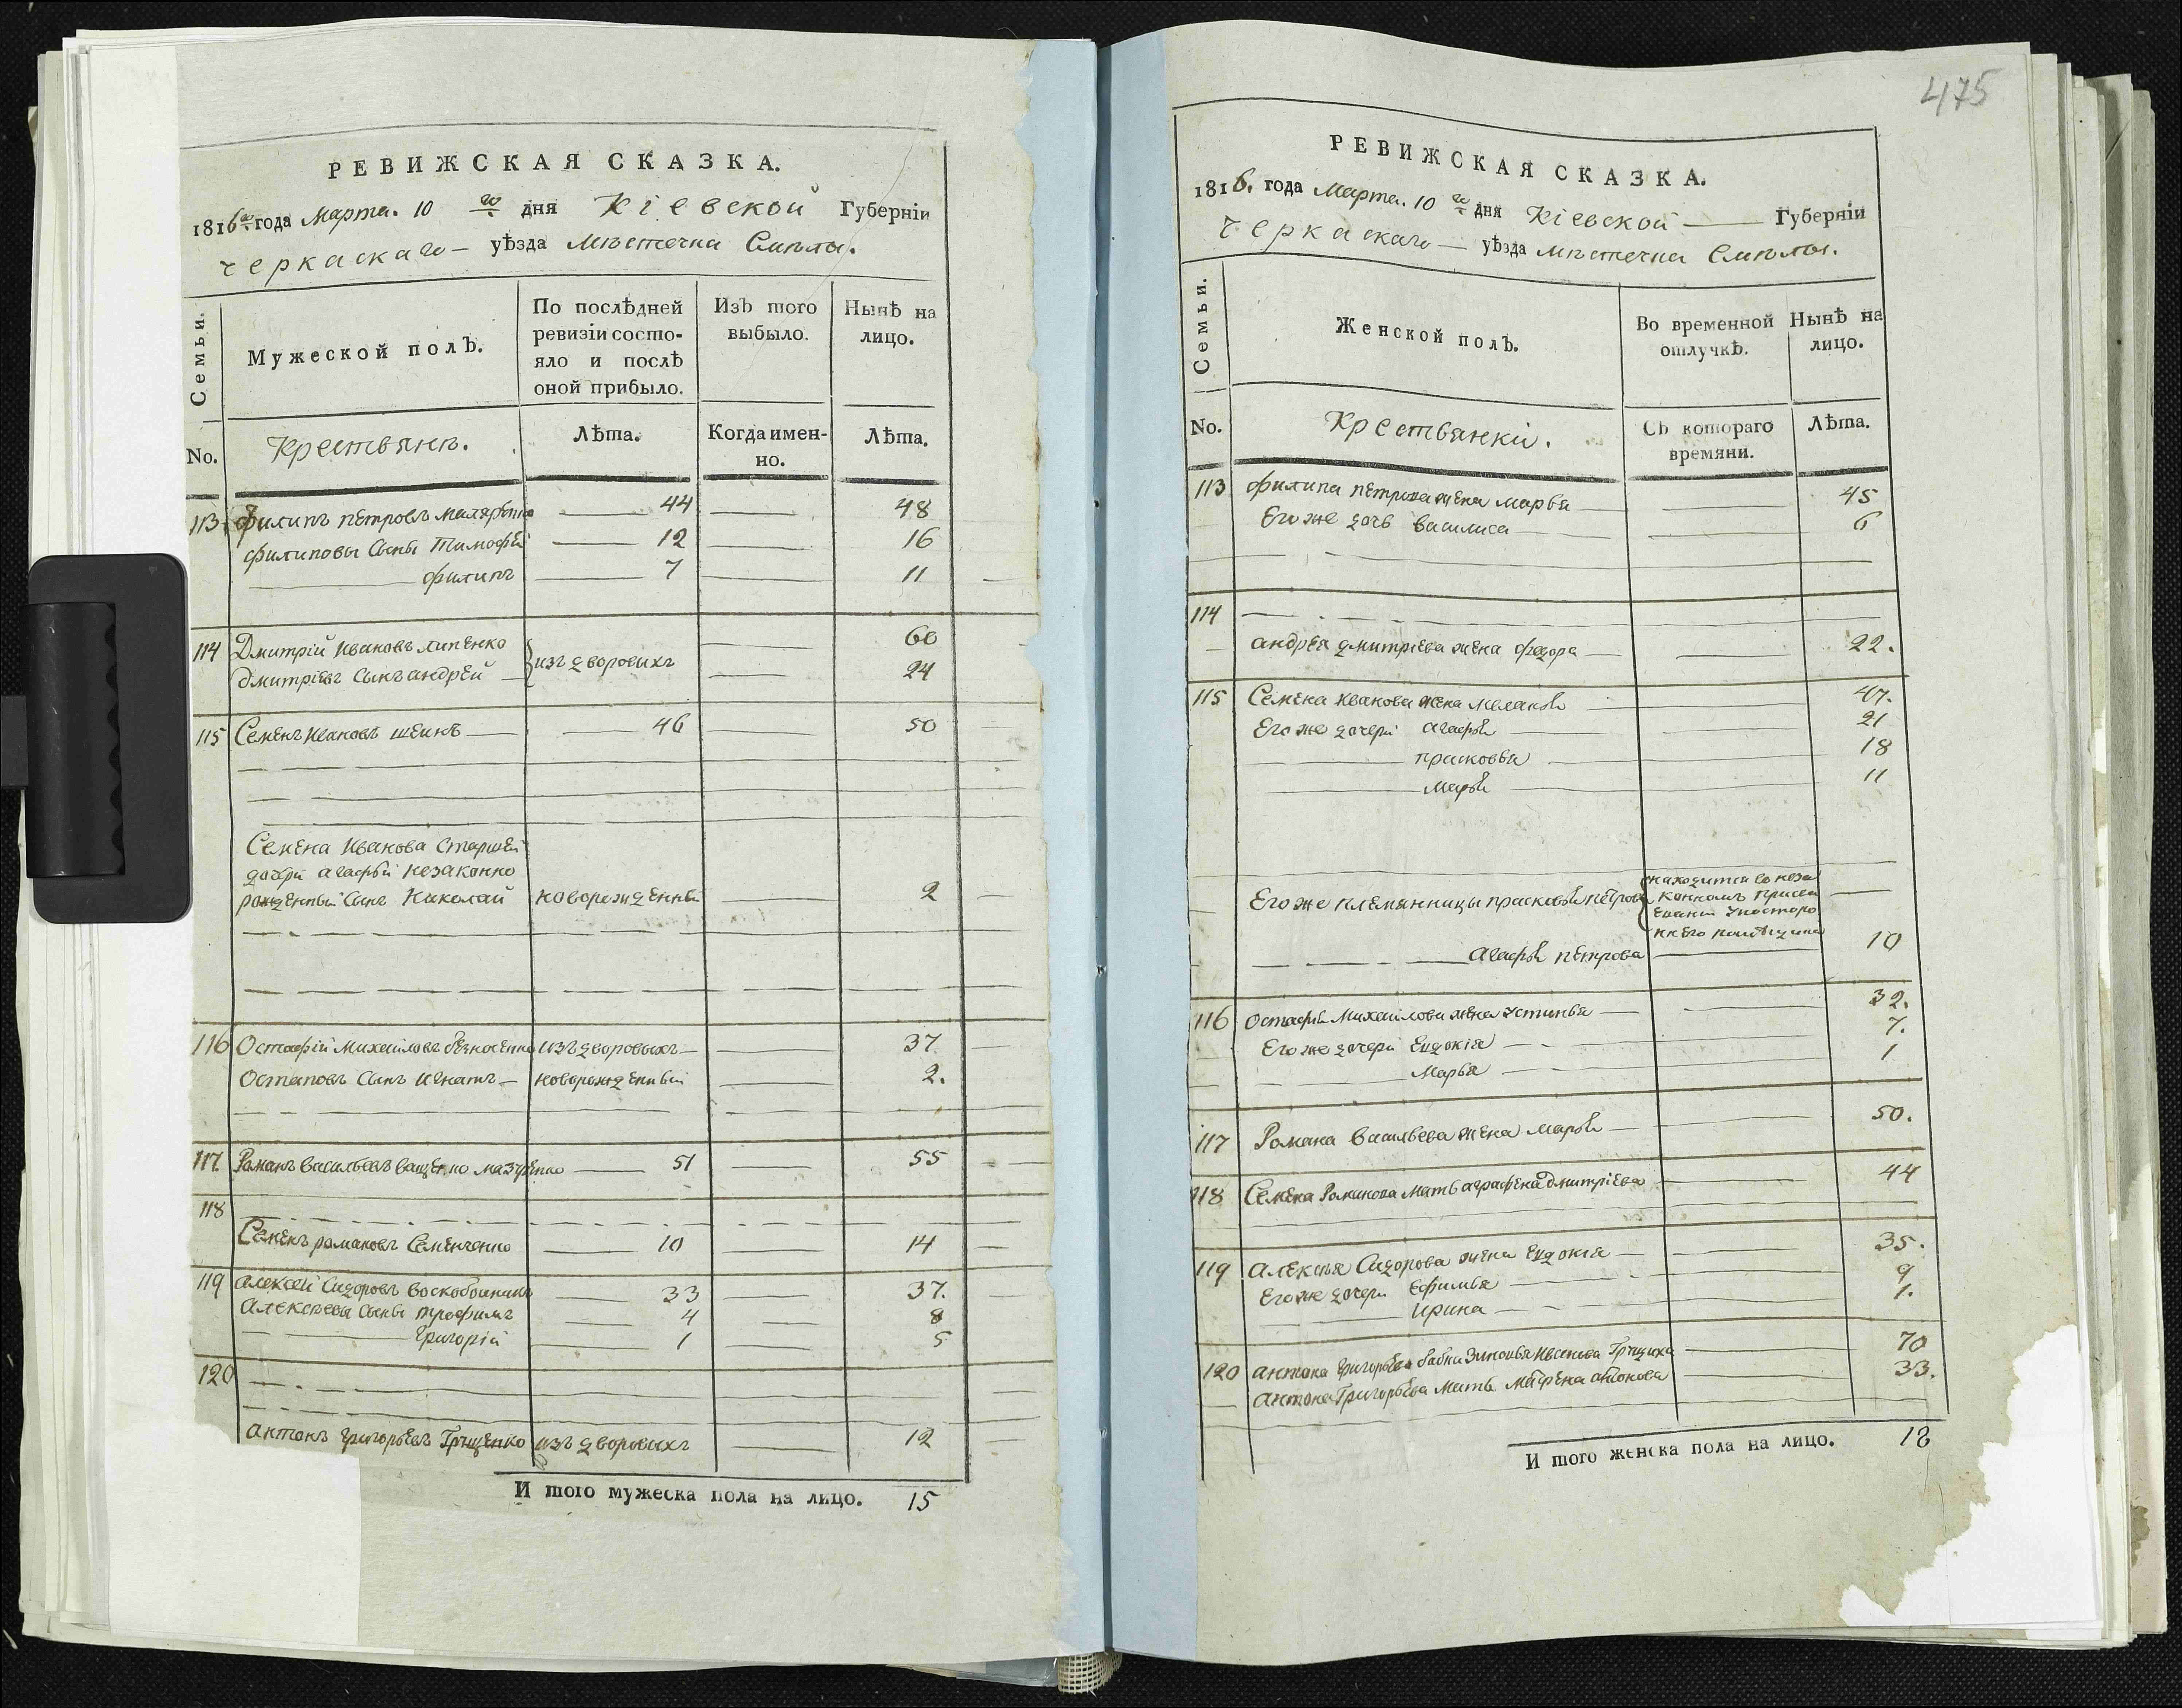 РЕВИЖСКАЯ СКАЗКА.
1816 года Марта. 10 го дня Кіевской Губерніи
Черкаскаго — уѣзда Мѣстечка Смѣлы.
Семьи.
Мужеской полъ.
По послѣдней ревизіи состо-
яло и послѣ
оной прибыло.
Изъ того
выбыло.
Нынѣ на
лицо.
No.
Крестьянъ.
Лѣта.
Когда имен-
но.
Лѣта.
113 Филипъ Петровъ 44 48
Филиповы Сыны Тимофей 12 16
Филипъ 7 11
114 Дмитрій Ивановъ Липенко изъ дворовыхъ 60
Дмитріевъ Сынъ Андрей 24
115 Семенъ Ивановъ Шеинъ 46 50
Семена Иванова Старшей
дочери Агафьи незаконно
рожденный Сынъ Николай новорожденный 2
116 Остафій Михайловъ изъ дворовыхъ 37
Остаповъ Сынъ Игнатъ новорожденный 2.
117 Романъ Васильевъ Ващенко Мазуренко 51 55
118
Семенъ Романовъ Семенченко 10 14
119 Алексей Сидоровъ Воскобойникъ 33 37.
Алексеевы Сыны Трофимъ 4 8
Григорій 1 5
120
Антонъ Григорьевъ Грищенко изъ дворовыхъ 12
И того мужеска пола на лицо. 15
475
РЕВИЖСКАЯ СКАЗКА.
1816. года Марта. 10 го дня Кіевской Губерніи
Черкаскаго — уѣзда Мѣстечка Смѣлы.
Семьи.
Женской полъ.
Во временной
отлучкѣ.
Нынѣ на
лицо.
No.
Крестьянки.
Съ котораго
времяни.
Лѣта.
113 Филипа Петрова жена Марья 45
Его же дочь Василиса 6
114
Андрея Дмитріева жена Федора 22.
115 Семена Иванова жена Меланья 47.
Его же дочери Агафья 21
Прасковья 18
Марья 11
Его же племянницы Прасковья Петрова находится во неза
конномъ
Агафья Петрова 10
116 Остафья Михайлова жена Устинья 32.
Его же дочери Евдокія 7.
Марья 1
117 Романа Васильева жена Марья 50.
118 Семена Романова Мать Аграфена Дмитріева 44
119 Алексея Сидорова жена Евдокія 35.
Его же дочери Ефимья 9
Ирина 1.
120 Антона Григорьева бабка Зиновья Иванова Грищиха 70
Антона Григорьева Мать Матрена Антонова 33.
И того женска пола на лицо. 18